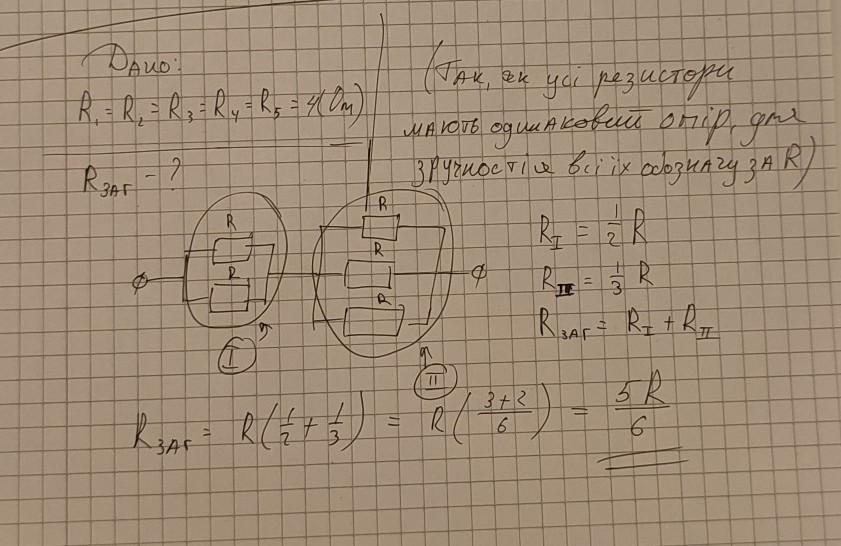 Дано:
R₁ = R₂ = R₃ = R₄ = R₅ = 4(Ом)
Rзаг - ?
(Так, як усі резистори
мають одинаковий опір, для
зручності я всі їх обозначу за R)
R
R
R
R
R
I
II
R_I = 1/2 R
R_II = 1/3 R
Rзаг = R_I + R_II
Rзаг = R(1/2 + 1/3) = R((3+2)/6) = 5R/6